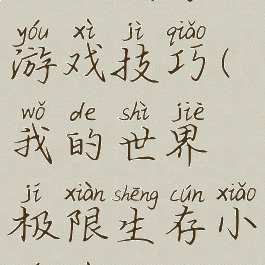 yóu xì jì qiǎo
游戏技巧(
wǒ de shì jiè
我的世界
jí xiàn shēng cún xiǎo
极限生存小